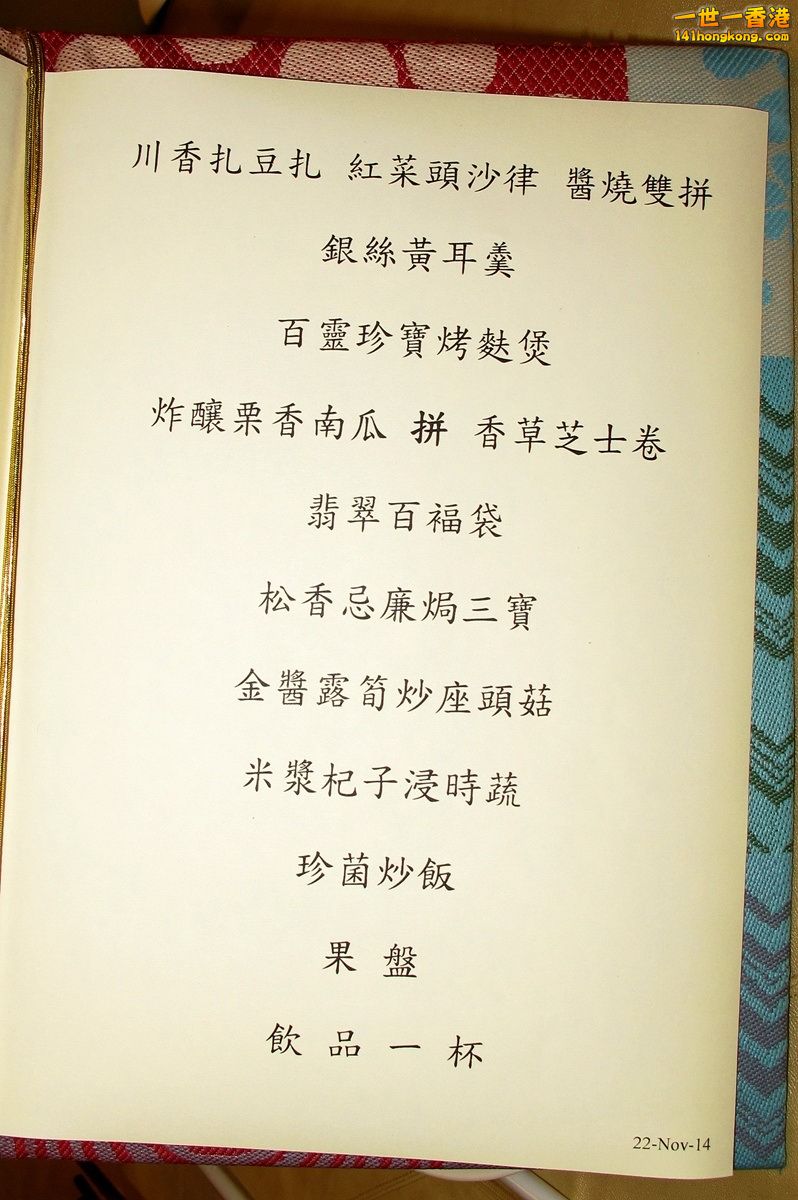 一世一香港
141hongkong.com
川香扎豆扎 紅菜頭沙律 醬燒雙拼
銀絲黃耳羹
百靈珍寶烤麩煲
炸釀栗香南瓜 拼 香草芝士卷
翡翠百福袋
松香忌廉焗三寶
金醬露筍炒座頭菇
米漿杞子浸時蔬
珍菌炒飯
果 盤
飲 品 一 杯
22-Nov-14